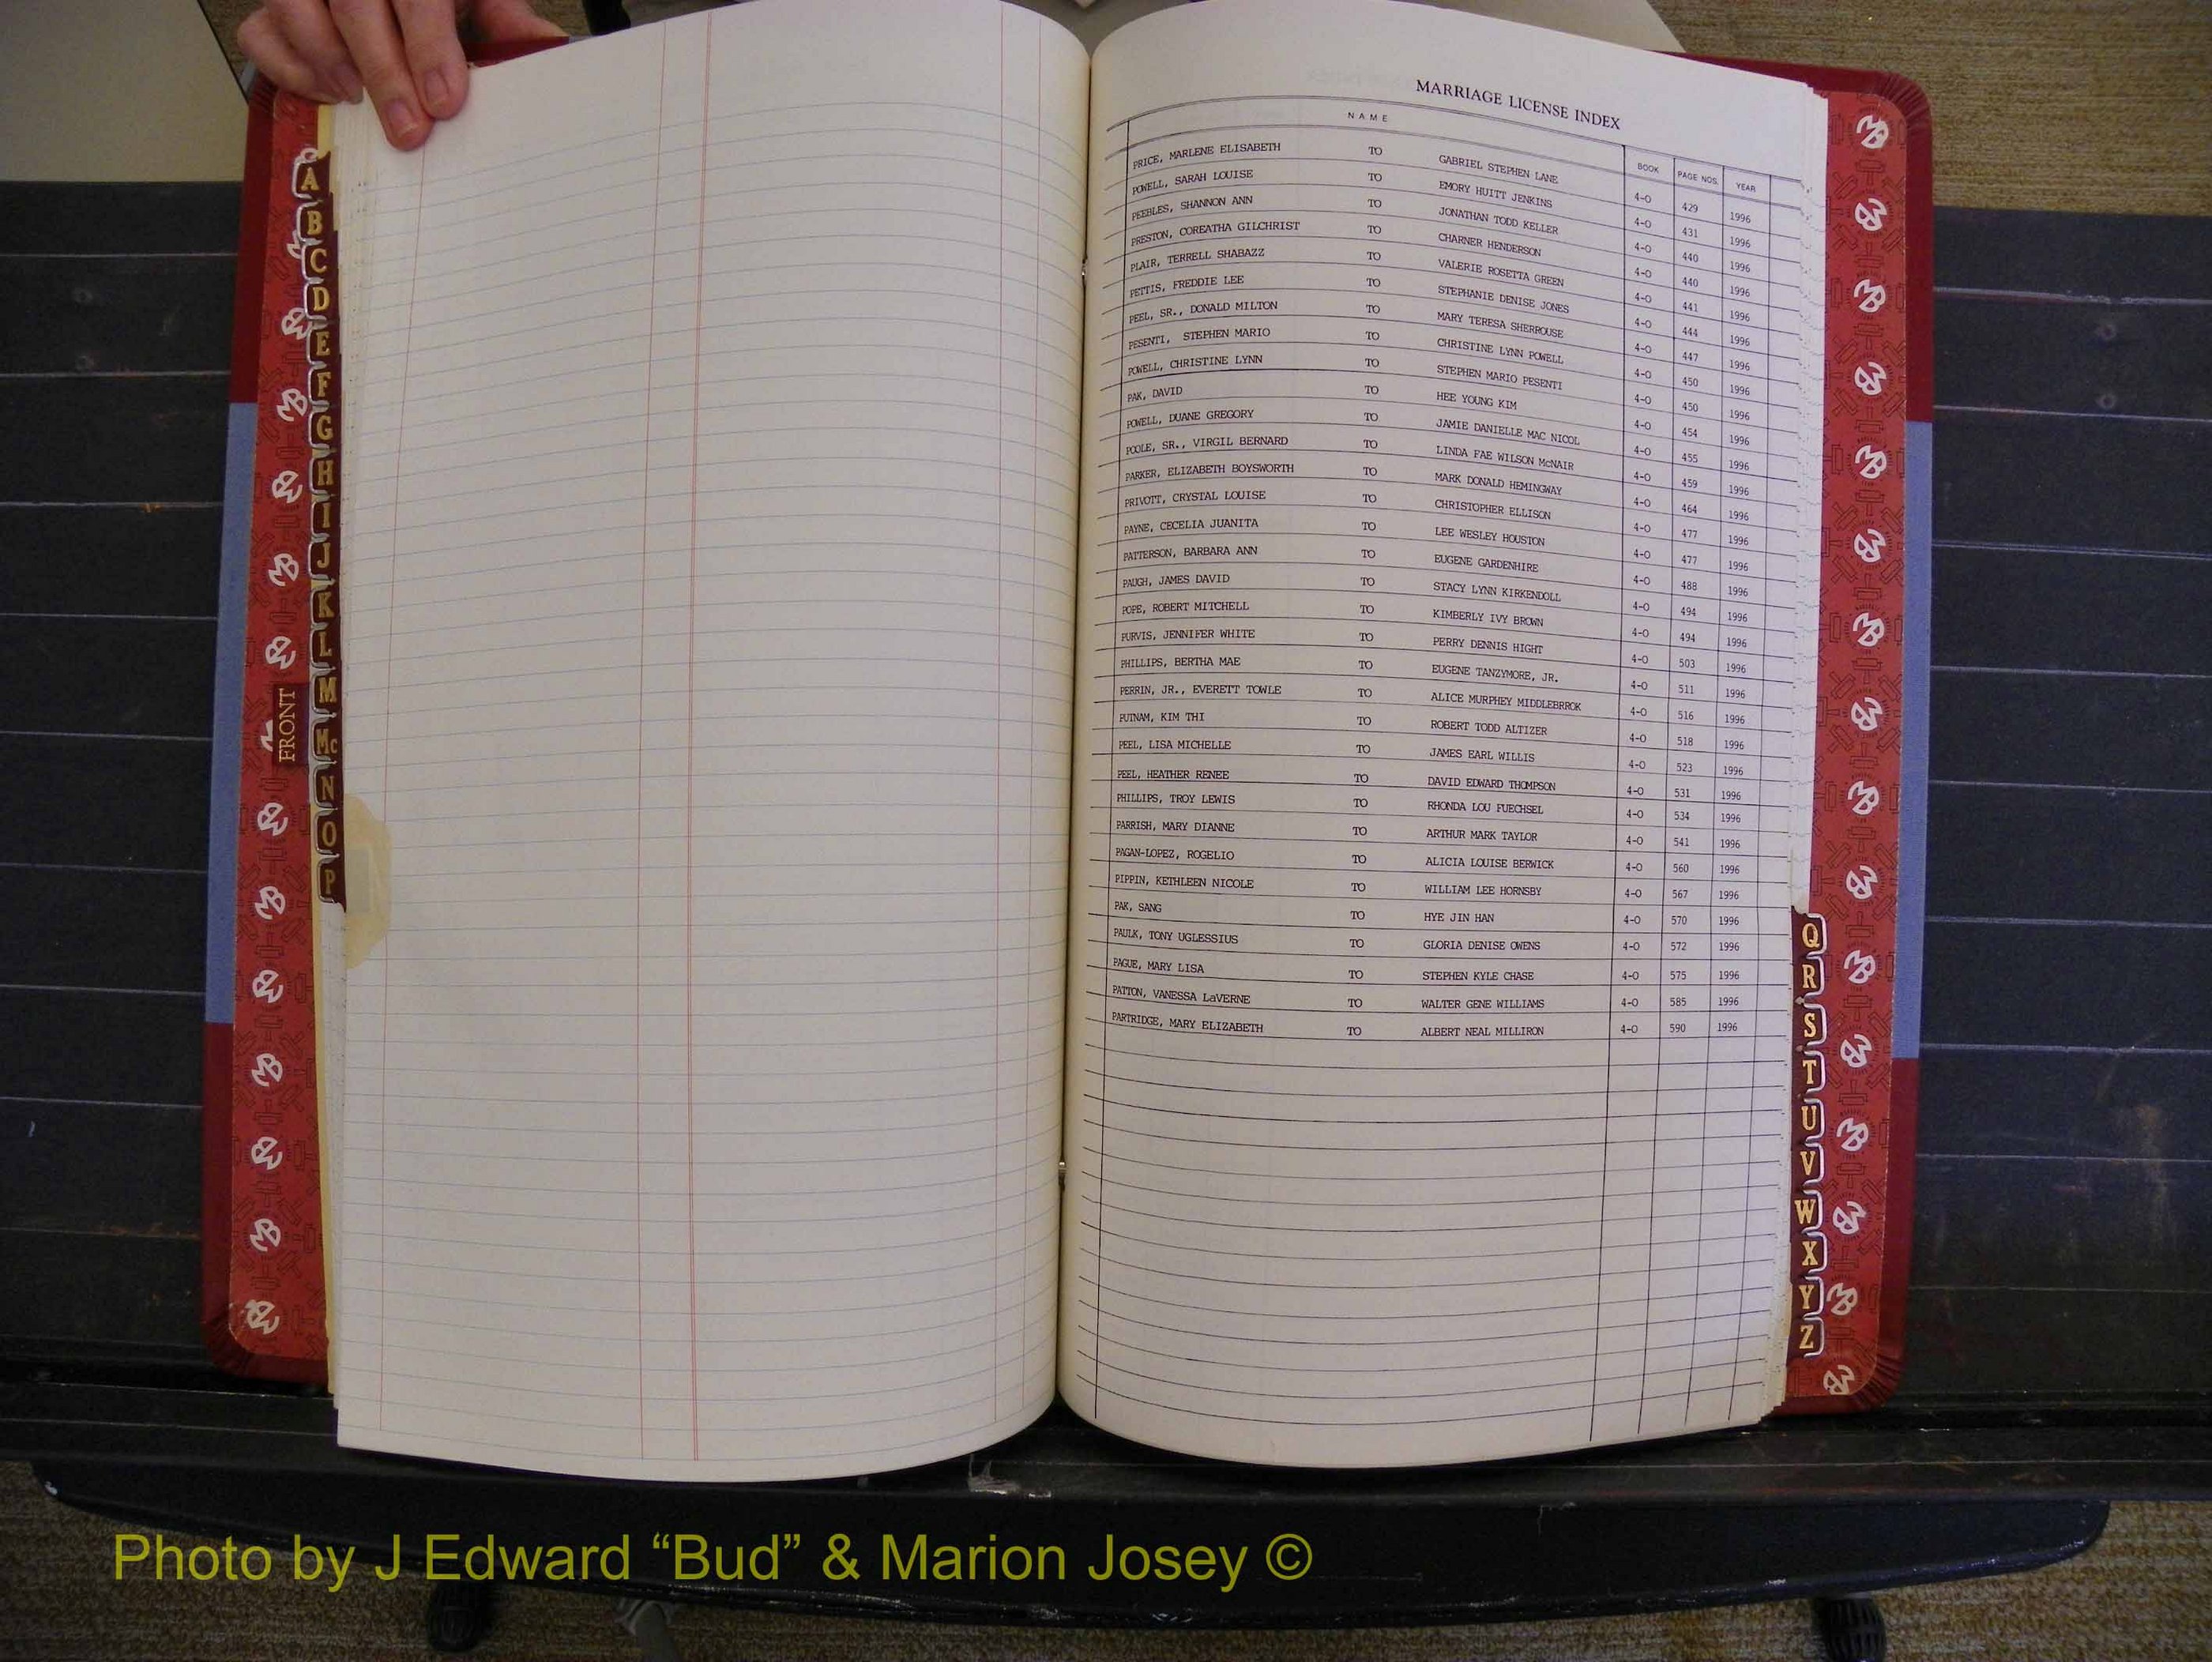 MARRIAGE LICENSE INDEX
NAME BOOK PAGE NOS. YEAR
PRICE, MARLENE ELISABETH TO GABRIEL STEPHEN LANE 4-O 429 1996
POWELL, SARAH LOUISE TO EMORY HUITT JENKINS 4-O 431 1996
PEEBLES, SHANNON ANN TO JONATHAN TODD KELLER 4-O 440 1996
PRESTON, COREATHA GILCHRIST TO CHARNER HENDERSON 4-O 440 1996
PLAIR, TERRELL SHABAZZ TO VALERIE ROSETTA GREEN 4-O 441 1996
PETTIS, FREDDIE LEE TO STEPHANIE DENISE JONES 4-O 444 1996
PEEL, SR., DONALD MILTON TO MARY TERESA SHERROUSE 4-O 447 1996
PESENTI, STEPHEN MARIO TO CHRISTINE LYNN POWELL 4-O 450 1996
POWELL, CHRISTINE LYNN TO STEPHEN MARIO PESENTI 4-O 450 1996
PAK, DAVID TO HEE YOUNG KIM 4-O 454 1996
POWELL, DUANE GREGORY TO JAMIE DANIELLE MAC NICOL 4-O 455 1996
POOLE, SR., VIRGIL BERNARD TO LINDA FAE WILSON McNAIR 4-O 459 1996
PARKER, ELIZABETH BOYSWORTH TO MARK DONALD HEMINGWAY 4-O 464 1996
PRIVOTT, CRYSTAL LOUISE TO CHRISTOPHER ELLISON 4-O 477 1996
PAYNE, CECELIA JUANITA TO LEE WESLEY HOUSTON 4-O 477 1996
PATTERSON, BARBARA ANN TO EUGENE GARDENHIRE 4-O 488 1996
PAUGH, JAMES DAVID TO STACY LYNN KIRKENDOLL 4-O 494 1996
POPE, ROBERT MITCHELL TO KIMBERLY IVY BROWN 4-O 494 1996
PURVIS, JENNIFER WHITE TO PERRY DENNIS HIGHT 4-O 503 1996
PHILLIPS, BERTHA MAE TO EUGENE TANZYMORE, JR. 4-O 511 1996
PERRIN, JR., EVERETT TOWLE TO ALICE MURPHEY MIDDLEBRROK 4-O 516 1996
PUTNAM, KIM THI TO ROBERT TODD ALTIZER 4-O 518 1996
PEEL, LISA MICHELLE TO JAMES EARL WILLIS 4-O 523 1996
PEEL, HEATHER RENEE TO DAVID EDWARD THOMPSON 4-O 531 1996
PHILLIPS, TROY LEWIS TO RHONDA LOU FUECHSEL 4-O 534 1996
PARRISH, MARY DIANNE TO ARTHUR MARK TAYLOR 4-O 541 1996
PAGAN-LOPEZ, ROGELIO TO ALICIA LOUISE BERWICK 4-O 560 1996
PIPPIN, KETHLEEN NICOLE TO WILLIAM LEE HORNSBY 4-O 567 1996
PAK, SANG TO HYE JIN HAN 4-O 570 1996
PAULK, TONY UGLESSIUS TO GLORIA DENISE OWENS 4-O 572 1996
PAGUE, MARY LISA TO STEPHEN KYLE CHASE 4-O 575 1996
PATTON, VANESSA LaVERNE TO WALTER GENE WILLIAMS 4-O 585 1996
PARTRIDGE, MARY ELIZABETH TO ALBERT NEAL MILLIRON 4-O 590 1996
A
B
C
D
E
F
G
H
I
J
K
L
M
Mc
N
O
P
FRONT
Q
R
S
T
U
V
W
X
Y
Z
Photo by J Edward “Bud” & Marion Josey ©